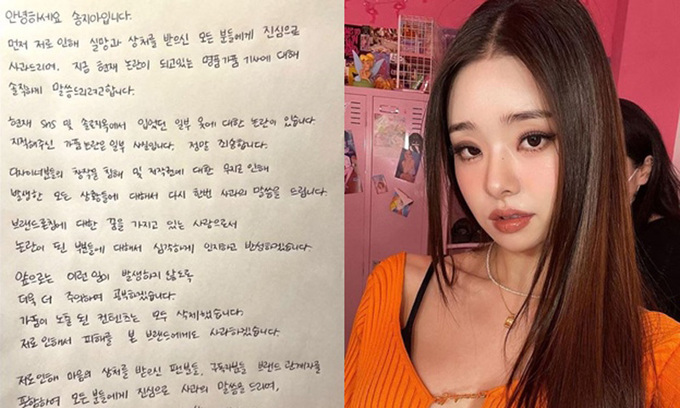 안녕하세요 송지아입니다.
먼저 저로 인해 실망과 상처를 받으신 모든 분들에게 진심으로
사과드리며, 지금 현재 논란이 되고있는 명품가품 기사에 대해
솔직하게 말씀드리려고합니다.
현재 SNS 및 솔로지옥에서 입었던 일부 옷에 대한 논란이 있습니다
지적해주신 가품 논란은 일부 사실입니다. 정말 죄송합니다.
디자이너분들의 창작물 침해 및 저작권에 대한 무지로 인해
발생한 모든 상황들에 대해서 다시 한번 사과의 말씀을 드립니다.
브랜드론칭에 대한 꿈을 가지고 있는 사람으로서
논란이 된 부분들에 대해서 심각하게 인지하고 반성하겠습니다
앞으로는 이런 일이 발생하지 않도록
더욱 더 주의하며 공부하겠습니다.
가품이 노출 된 컨텐츠는 모두 삭제했습니다.
저로 인해서 피해를 본 브랜드에게도 사과하겠습니다.
저로인해 마음의 상처를 받으신 팬분들, 구독자분들 브랜드 관계자를
포함하여 모든 분들에게 진심으로 사과의 말씀을 드리며,